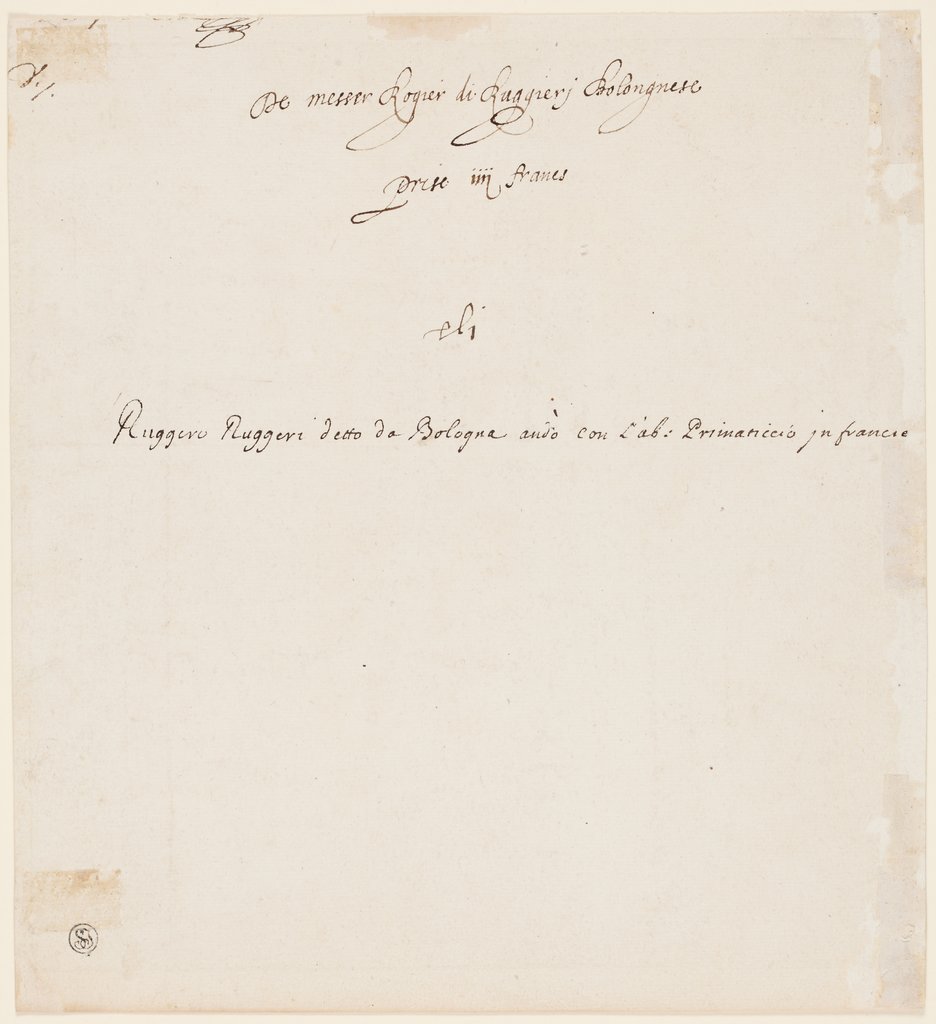 De messer Rogier di Ruggierj Bolongnese
prise iiij francs
elj
Ruggero Ruggeri detto da Bologna andò con l'ab: Primaticcio jn francie